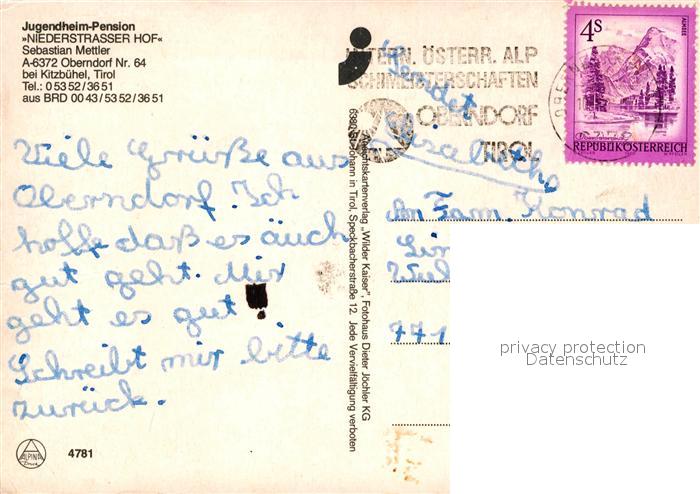 Jugendheim-Pension
»NIEDERSTRASSER HOF«
Sebastian Mettler
A-6372 Oberndorf Nr. 64
bei Kitzbühel, Tirol
Tel.: 0 53 52 / 36 51
aus BRD 00 43 / 53 52 / 36 51
Viele Grüße aus
Oberndorf. Ich
hoffe daß es äuch
gut geht. Mir
geht es gut!
Schreibt mir bitte
zurück.
ALPINA
4781
Ansichtskartenverlag „Wilder Kaiser", Fotohaus Dieter Jöchler KG
6380 St. Johann in Tirol, Speckbacherstraße 12. Jede Vervielfältigung verboten
INTERN. ÖSTERR. ALP
SCHIMEISTERSCHAFTEN
OBERNDORF
TIROL
4S
ALMSEE
REPUBLIK ÖSTERREICH
An Fam. Konrad
771
privacy protection
Datenschutz